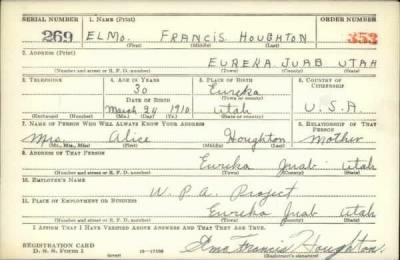 SERIAL NUMBER 1. NAME (Print) ORDER NUMBER
269 ELMO. FRANCIS HOUGHTON 353
(First) (Middle) (Last)
2. ADDRESS (Print)
EUREKA JUAB UTAH
(Number and street or R. F. D. number) (Town) (County) (State)
3. TELEPHONE 4. AGE IN YEARS 5. PLACE OF BIRTH 6. COUNTRY OF CITIZENSHIP
30 Eureka
DATE OF BIRTH (Town or county)
March 24 1910 Utah U.S.A.
(Exchange) (Number) (Mo.) (Day) (Yr.) (State or country)
7. NAME OF PERSON WHO WILL ALWAYS KNOW YOUR ADDRESS 8. RELATIONSHIP OF THAT PERSON
Mrs. Alice Houghton Mother
(Mr., Mrs., Miss) (First) (Middle) (Last)
9. ADDRESS OF THAT PERSON
Eureka Juab Utah
(Number and street or R. F. D. number) (Town) (County) (State)
10. EMPLOYER'S NAME
W. P. A. Project
11. PLACE OF EMPLOYMENT OR BUSINESS
Eureka Juab Utah
(Number and street or R. F. D. number) (Town) (County) (State)
I AFFIRM THAT I HAVE VERIFIED ABOVE ANSWERS AND THAT THEY ARE TRUE.
REGISTRATION CARD
D. S. S. Form 1 (over) Elmo Francis Houghton.
(Registrant's signature)